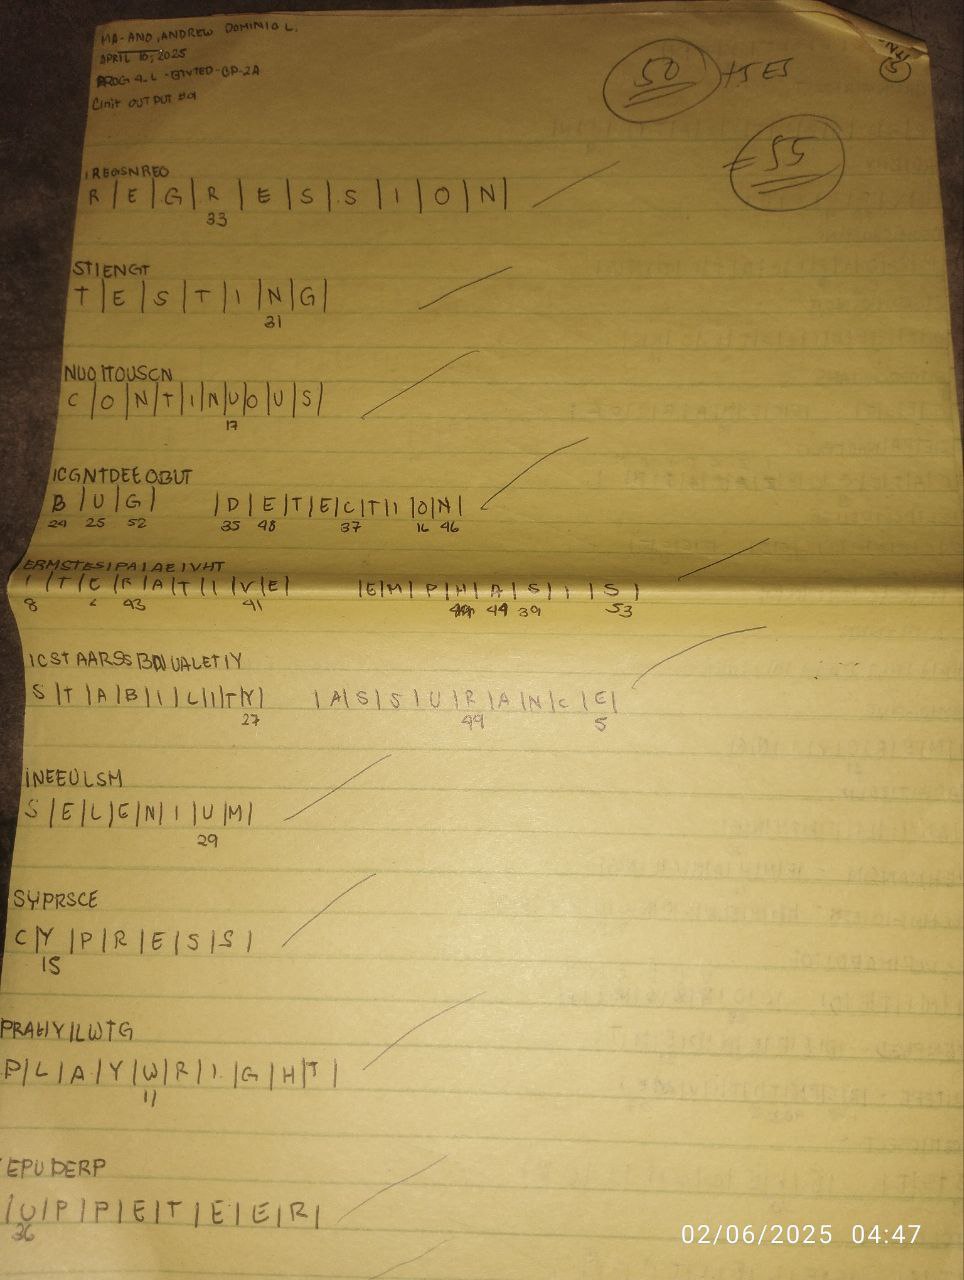 MA-ANO, ANDREW DOMINIO L.
APRIL 10, 2025
PROG 4-L - BTVTED-CP-2A
Clinit OUTPUT #01
50 +5ES
5
= 55
IREOSNREO
R | E | G | R | E | S | S | I | O | N |
33
STIENGT
T | E | S | T | I | N | G |
31
NUOITOUSCN
C | O | N | T | I | N | U | O | U | S |
17
ICGNTDEEOBUT
B | U | G | | D | E | T | E | C | T | I | O | N |
24 25 52 35 48 37 16 46
ERMSTESIPAIAEIVHT
I | T | E | R | A | T | I | V | E | | E | M | P | H | A | S | I | S |
8 43 41 44 39 53
ICSTAARSSBNUALETIY
S | T | A | B | I | L | I | T | Y | | A | S | S | U | R | A | N | C | E |
27 49 5
INEEULSM
S | E | L | E | N | I | U | M |
29
SYPRSCE
C | Y | P | R | E | S | S |
15
PRAHYILWTG
P | L | A | Y | W | R | I | G | H | T |
11
EPUDERP
| U | P | P | E | T | E | E | R |
36
02/06/2025 04:47